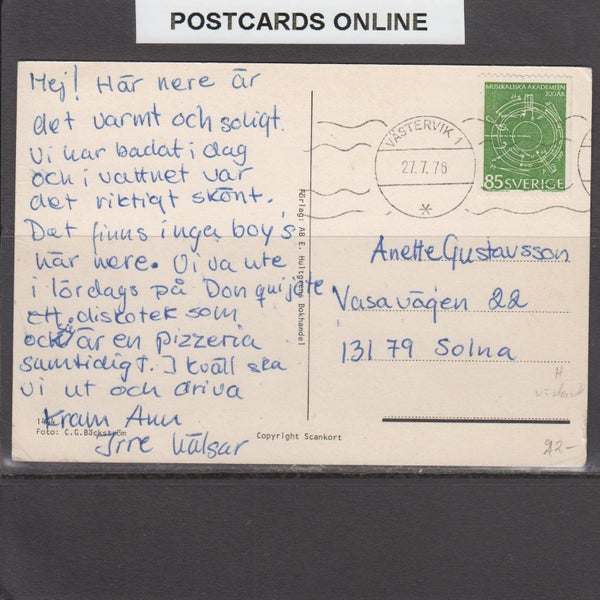 POSTCARDS ONLINE
Hej! Här nere är
det varmt och soligt.
Vi har badat i dag
och i vattnet var
det riktigt skönt.
Det finns inga boy's
här nere. Vi va ute
i lördags på Don quijote
ett diskotek som
också är en pizzeria
samtidigt. I kväll ska
vi ut och driva
Kram Ann
Irre hälsar
Foto: C.G.Bäckström
Copyright Scankort
Förlag: AB E. Hultgrens Bokhandel
VÄSTERVIK 1
27.7.76
MUSIKALISKA AKADEMIEN
200 ÅR
85 SVERIGE
Anette Gustavsson
Vasavägen 22
131 79 Solna
H
22-